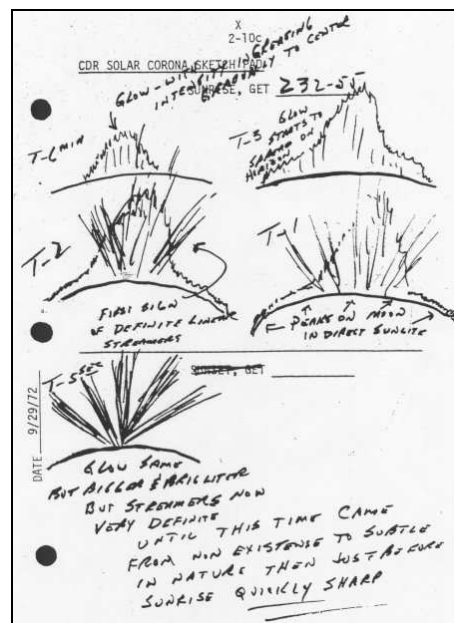 X
2-10c
CDR SOLAR CORONA SKETCH PAD
GLOW - WITH INCREASING
INTENSITY TO CENTER
SUNRISE, GET 232-55
T-6 MIN
T-3
GLOW
STARTS TO
SPREAD ON
HORIZON
T-2
FIRST SIGN
OF DEFINITE LINEAR
STREAMERS
T-1
PEAKS ON MOON
IN DIRECT SUNLITE
SUNSET, GET
T-5 SEC
DATE 9/29/72
GLOW SAME
BUT BIGGER & BRIGHTER
BUT STREAMERS NOW
VERY DEFINITE
UNTIL THIS TIME CAME
FROM NON EXISTENSE TO SUBTLE
IN NATURE THEN JUST BEFORE
SUNRISE QUICKLY SHARP